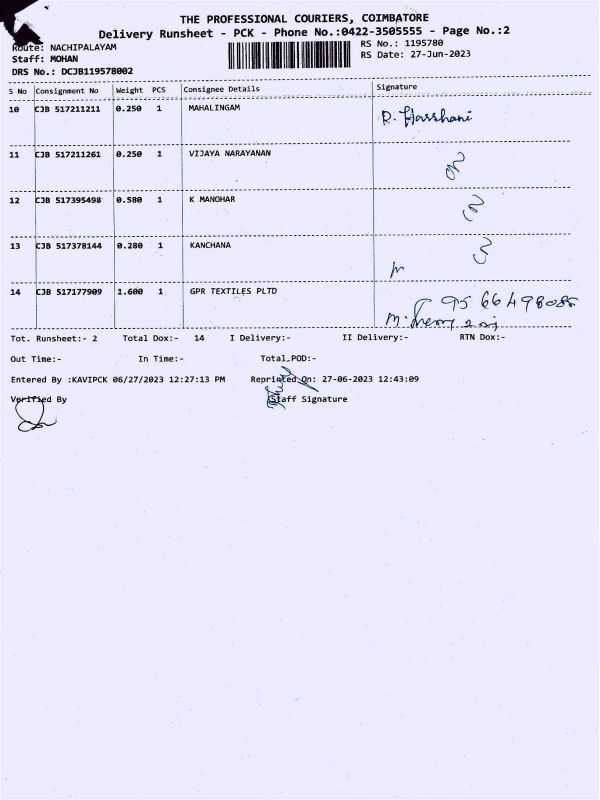 THE PROFESSIONAL COURIERS, COIMBATORE
Delivery Runsheet - PCK - Phone No.:0422-3505555 - Page No.:2
Route: NACHIPALAYAM
RS No.: 1195780
Staff: MOHAN
RS Date: 27-Jun-2023
DRS No.: DCJB119578002
S No Consignment No Weight PCS Consignee Details Signature
10 CJB 517211211 0.250 1 MAHALINGAM R. Harshani
11 CJB 517211261 0.250 1 VIJAYA NARAYANAN
12 CJB 517395498 0.580 1 K MANOHAR
13 CJB 517378144 0.280 1 KANCHANA
14 CJB 517177909 1.600 1 GPR TEXTILES PLTD
Tot. Runsheet:- 2 Total Dox:- 14 I Delivery:- II Delivery:- RTN Dox:-
Out Time:- In Time:- Total.POD:-
Entered By :KAVIPCK 06/27/2023 12:27:13 PM Reprinted On: 27-06-2023 12:43:09
Verified By Staff Signature